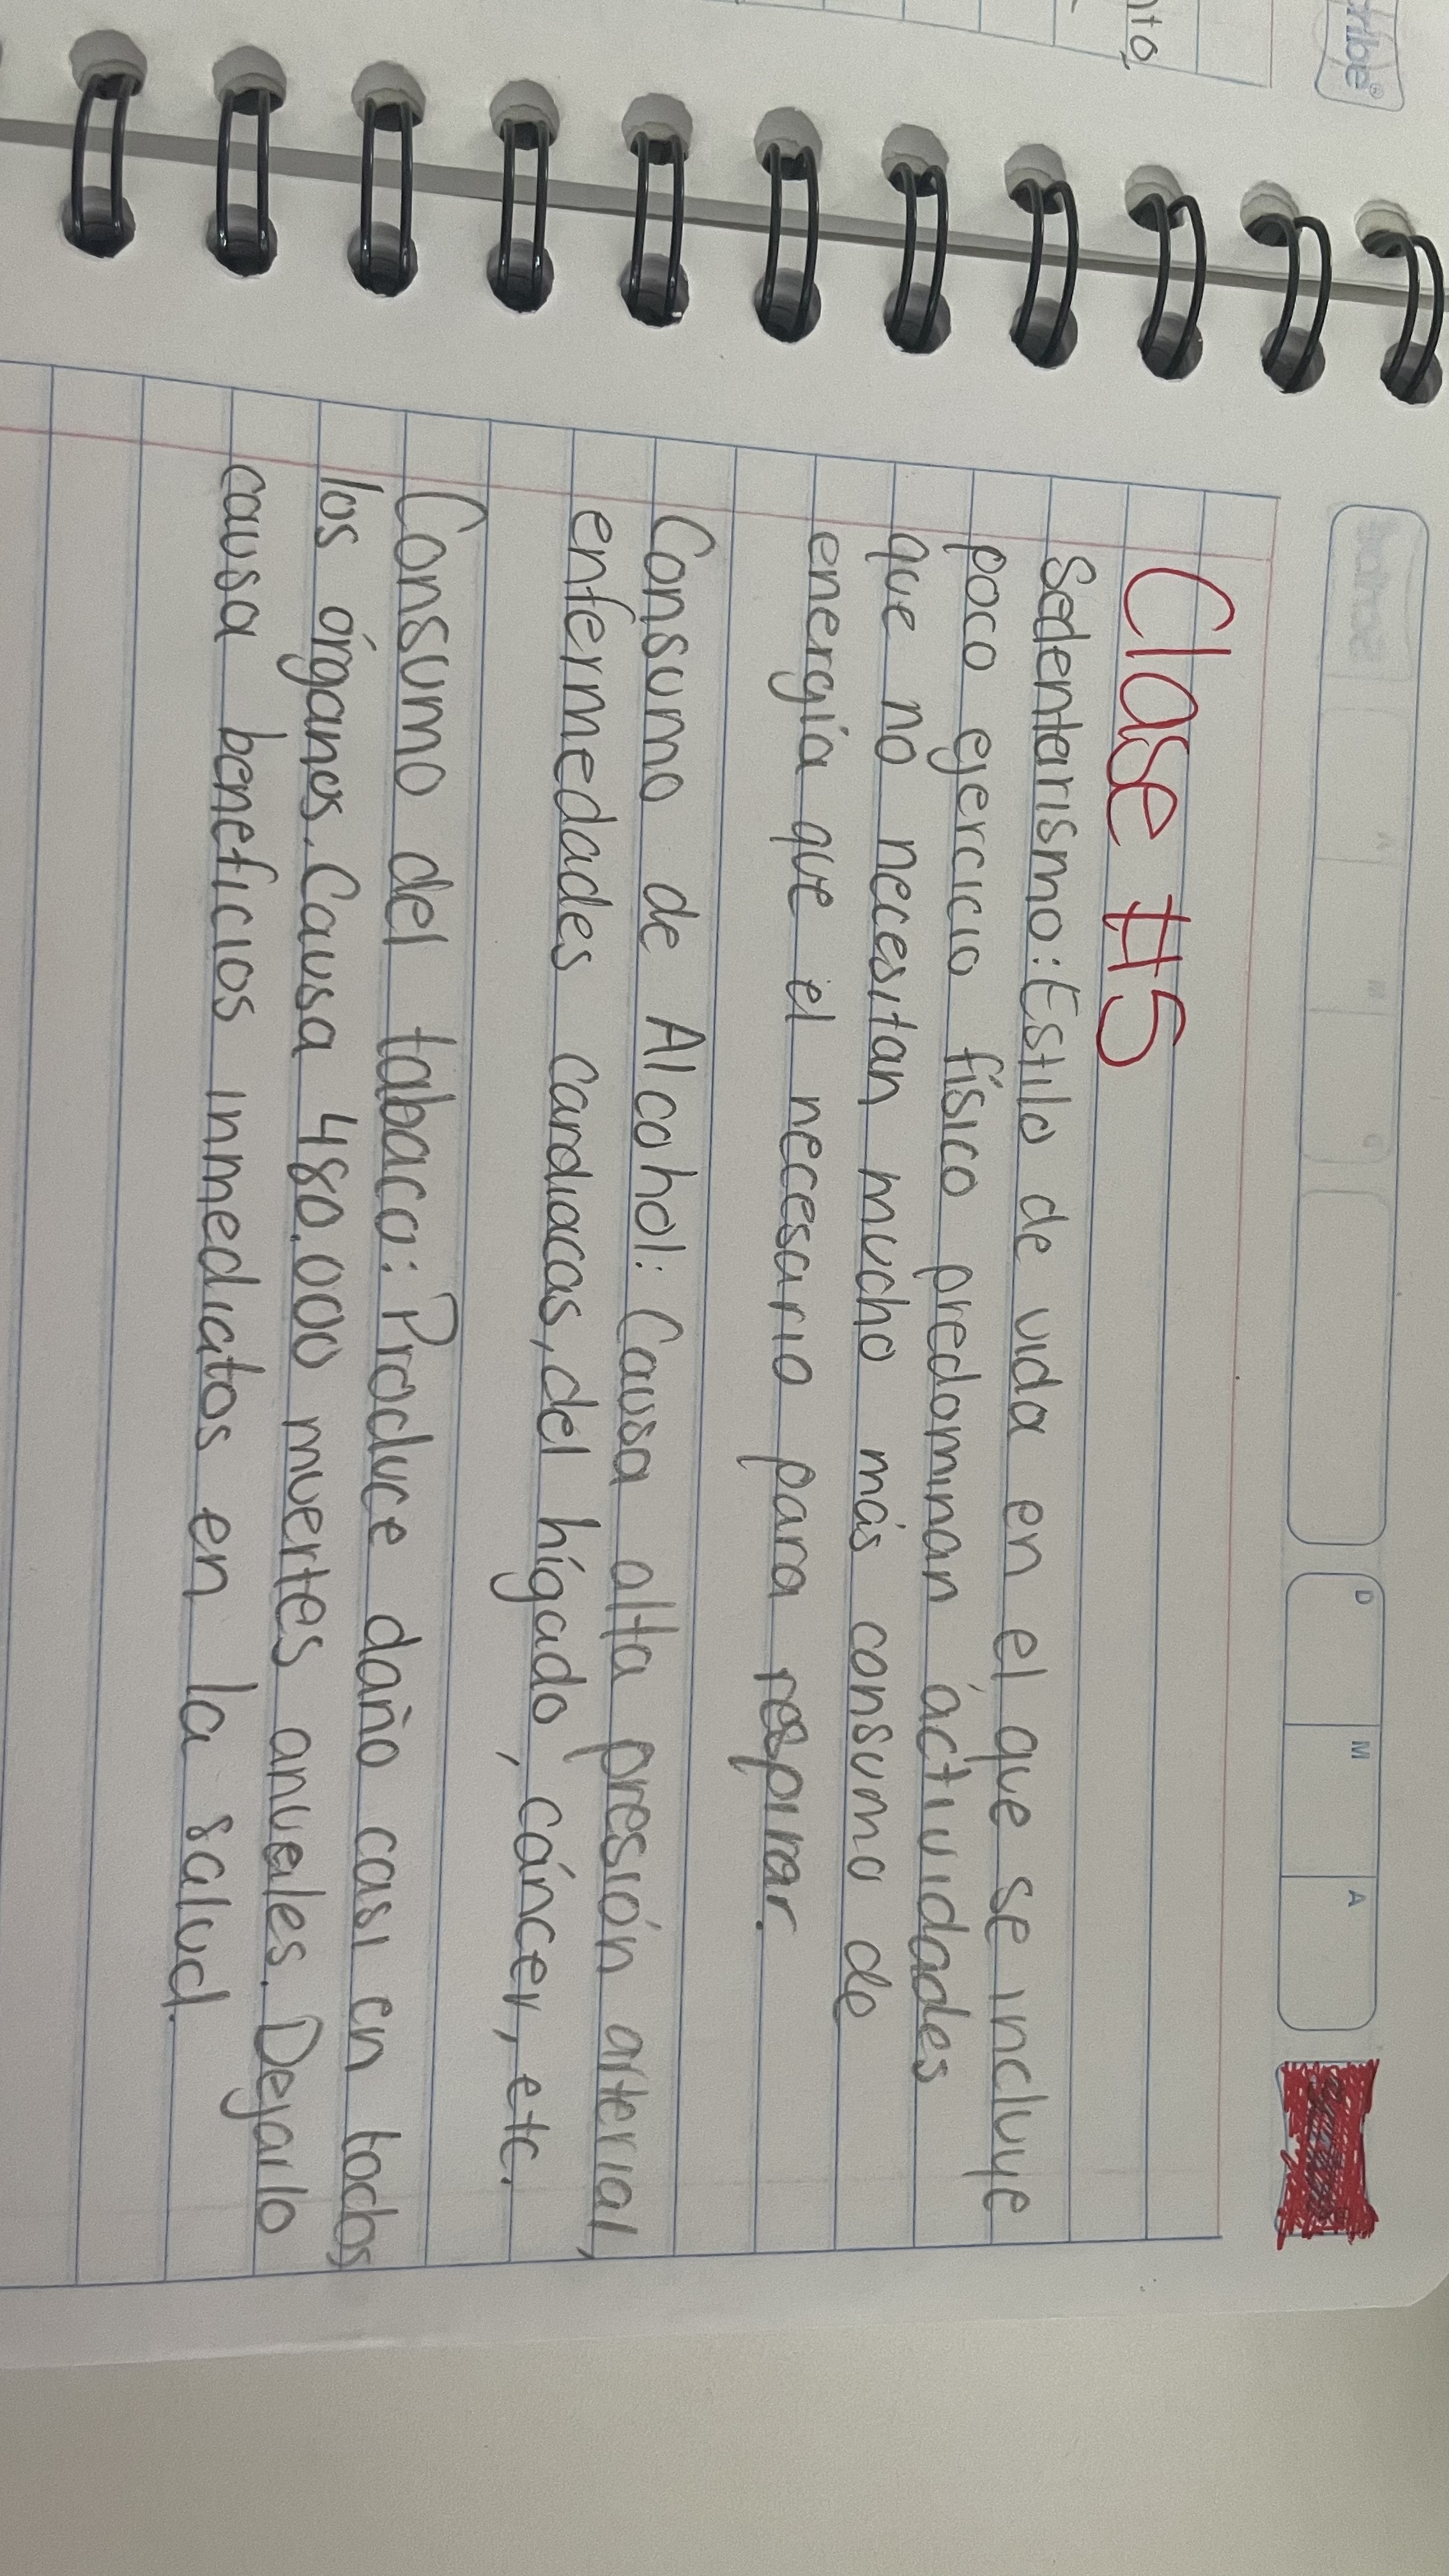 nto,
cribe®
D M A
Clase #5
Sedentarismo: Estilo de vida en el que se incluye
poco ejercicio físico predominan áctividades
que no necesitan mucho más consumo de
energía que el necesario para respirar.
Consumo de Alcohol: Causa alta presión arterial,
enfermedades cardiacas, del hígado, cáncer, etc.
Consumo del tabaco: Produce daño casi en todos
los órganos. Causa 480.000 muertes anuales. Dejarlo
causa beneficios inmediatos en la salud.